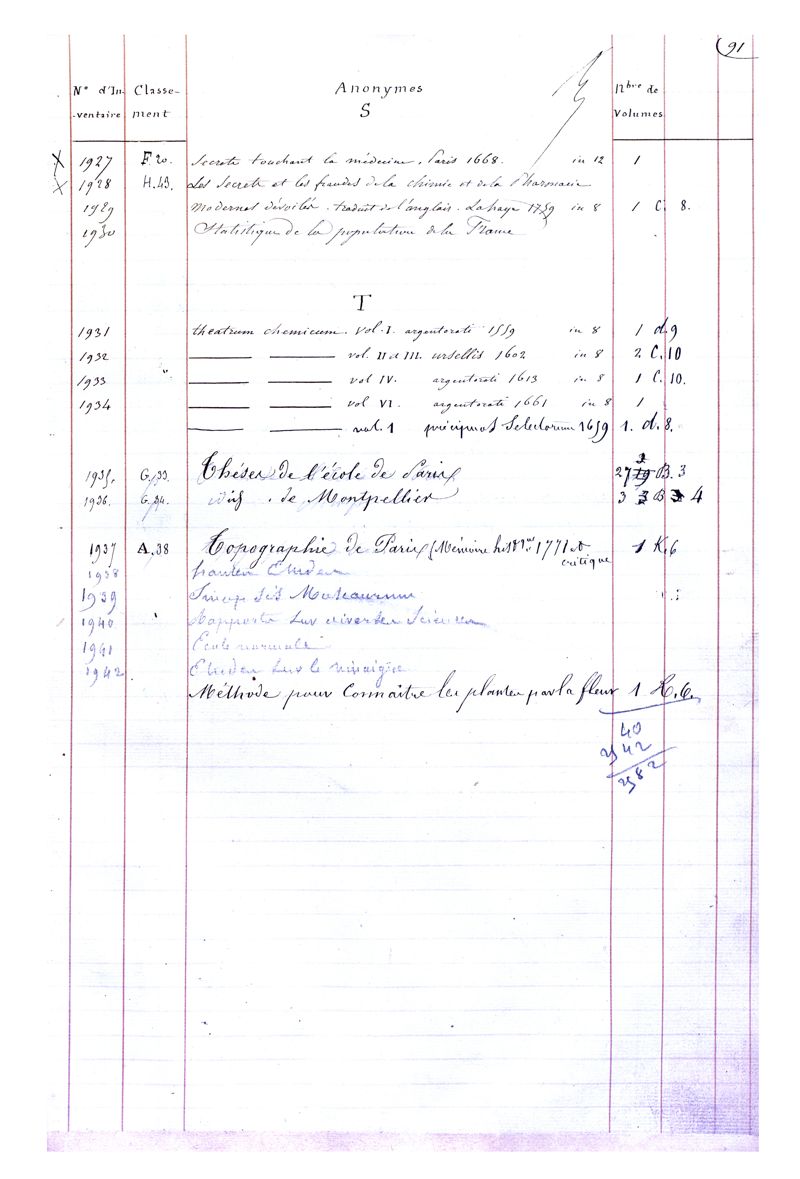 91
N° d'In-ventaire Classe-ment Anonymes Nbre de Volumes
S
1927 F 20. Secrets touchant la médecine. Paris 1668. in 12 1
1928 H.43. Les Secrets et les fraudes de la chimie et de la Pharmacie
1929 modernes dévoilés. traduit de l'anglais. La haye 1759 in 8 1 C. 8.
1930 Statistique de la population de la France
T
1931 theatrum chemicum. vol. I. argentorati 1559 in 8 1 d.9
1932 vol. II et III. ursellis 1602 in 8 2 C.10
1933 vol IV. argentorati 1613 in 8 1 C.10.
1934 vol VI. argentorati 1661 in 8 1
vol. 1 selectorum 1659 1. d. 8.
1935. G.33. Thèses de l'école de Paris 27 B. 3
1936. G.34. de Montpellier 3 B 4
1937 A.38 Topographie de Paris (Mémoire 1771 et critique 1 K.6
1938 Etudes
1939 Museaurum
1940 Rapports sur diverses Sciences
1941 Ecole normale
1942 Etudes sur le vinaigre
Méthode pour connaitre les plantes par la fleur 1 K.6.
40
2542
2582